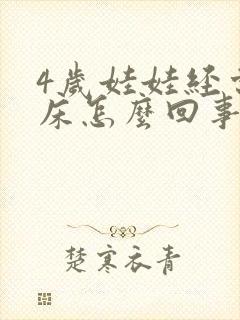 4歲娃娃經
床怎麼回事
楚寒衣青